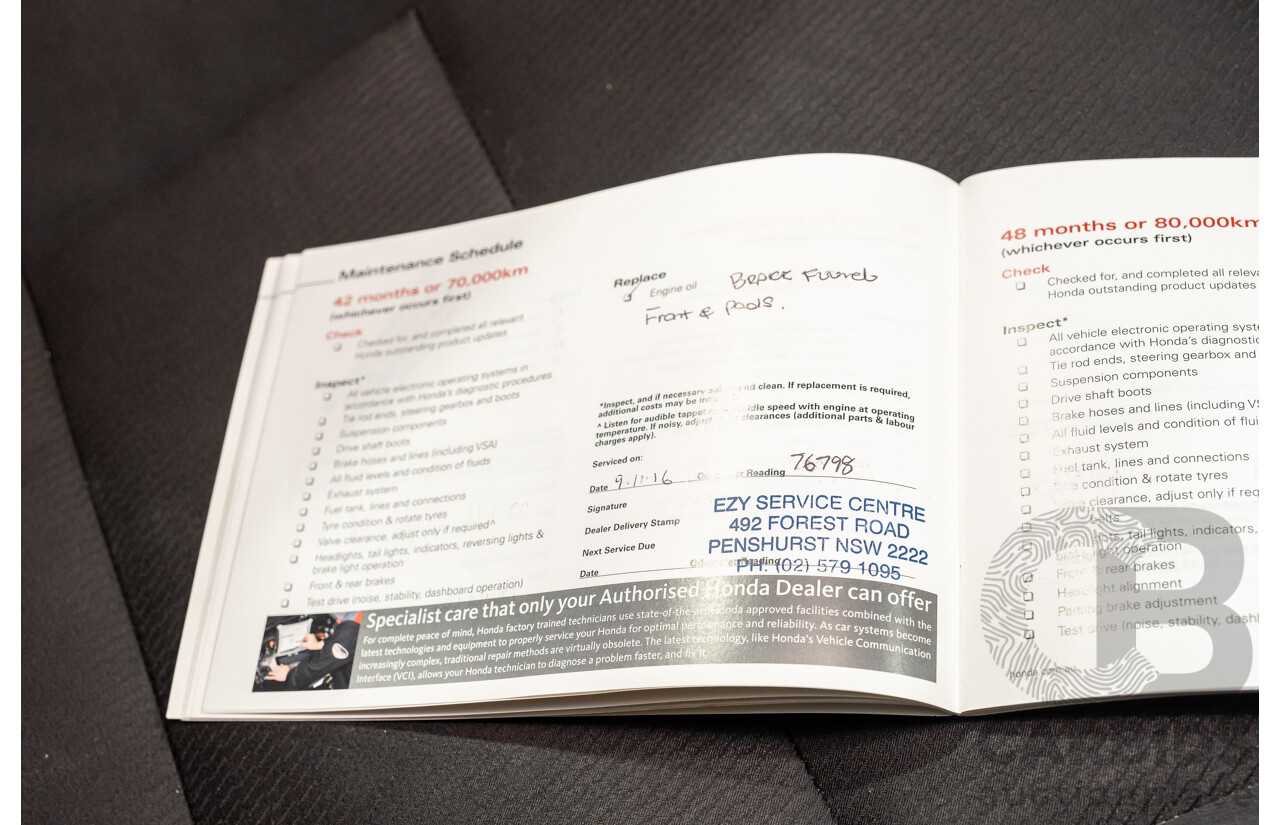 Maintenance Schedule
42 months or 70,000km
(whichever occurs first)
Check
Checked for, and completed all relevant
Honda outstanding product updates
Inspect*
All vehicle electronic operating systems in
accordance with Honda's diagnostic procedures
Tie rod ends, steering gearbox and boots
Suspension components
Drive shaft boots
Brake hoses and lines (including VSA)
All fluid levels and condition of fluids
Exhaust system
Fuel tank, lines and connections
Tyre condition & rotate tyres
Valve clearance, adjust only if required^
Headlights, tail lights, indicators, reversing lights &
brake light operation
Front & rear brakes
Test drive (noise, stability, dashboard operation)
Replace
Engine oil
Front & pads.
*Inspect, and if necessary and clean. If replacement is required,
additional costs may be
^ Listen for audible tappet idle speed with engine at operating
temperature. If noisy, adjust clearances (additional parts & labour
charges apply).
Serviced on:
Date 9.11.16 Reading 76798
Signature
Dealer Delivery Stamp
Next Service Due
Date Reading
EZY SERVICE CENTRE
492 FOREST ROAD
PENSHURST NSW 2222
PH: (02) 579 1095
Specialist care that only your Authorised Honda Dealer can offer
For complete peace of mind, Honda factory trained technicians use state-of-the-art Honda approved facilities combined with the
latest technologies and equipment to properly service your Honda for optimal performance and reliability. As car systems become
increasingly complex, traditional repair methods are virtually obsolete. The latest technology, like Honda's Vehicle Communication
Interface (VCI), allows your Honda technician to diagnose a problem faster, and fix it
48 months or 80,000km
(whichever occurs first)
Check
Checked for, and completed all releva
Honda outstanding product updates
Inspect*
All vehicle electronic operating syste
accordance with Honda's diagnostic
Tie rod ends, steering gearbox and
Suspension components
Drive shaft boots
Brake hoses and lines (including VS
All fluid levels and condition of flui
Exhaust system
Fuel tank, lines and connections
condition & rotate tyres
clearance, adjust only if req
belts
tail lights, indicators,
light operation
Front & rear brakes
Headlight alignment
Parking brake adjustment
Test drive (noise, stability, dash
honda.com.au